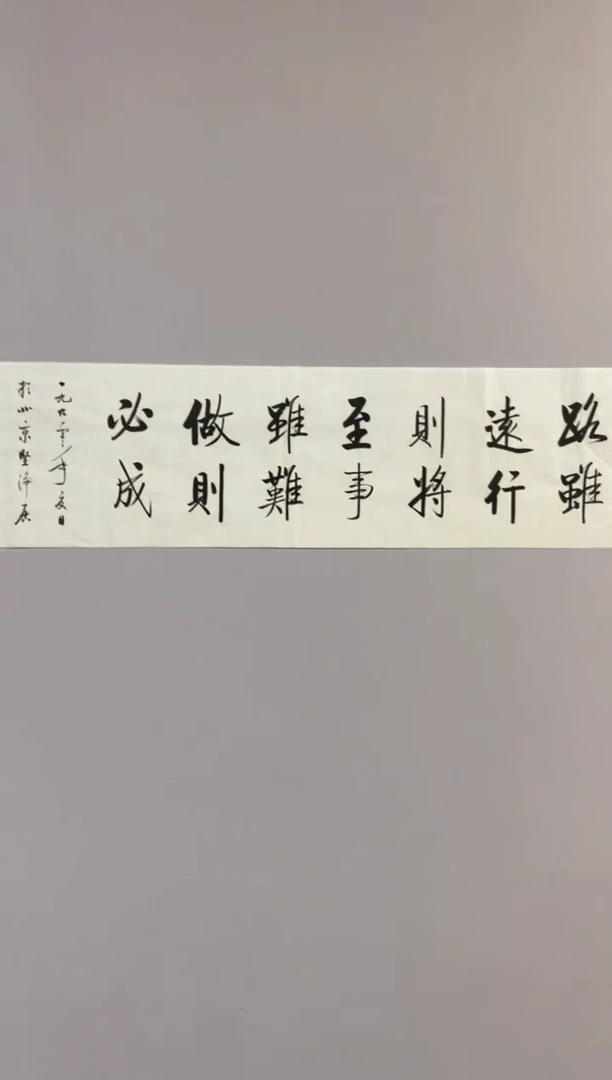 路雖
遠行
則將
至事
雖難
做則
必成
一九九零年夏日
於北京堅淨居